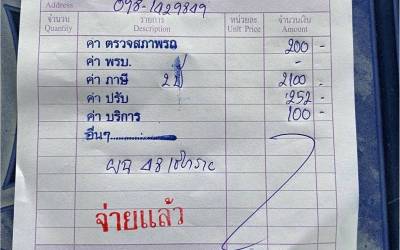 Address 098-1429849
จำนวน รายการ หน่วยละ จำนวนเงิน
Quantity Description Unit Price Amount
ค่า ตรวจสภาพรถ 200 -
ค่า พรบ. -
ค่า ภาษี 2100 -
ค่า ปรับ 252 -
ค่า บริการ 100 -
อื่นๆ
จ่ายแล้ว